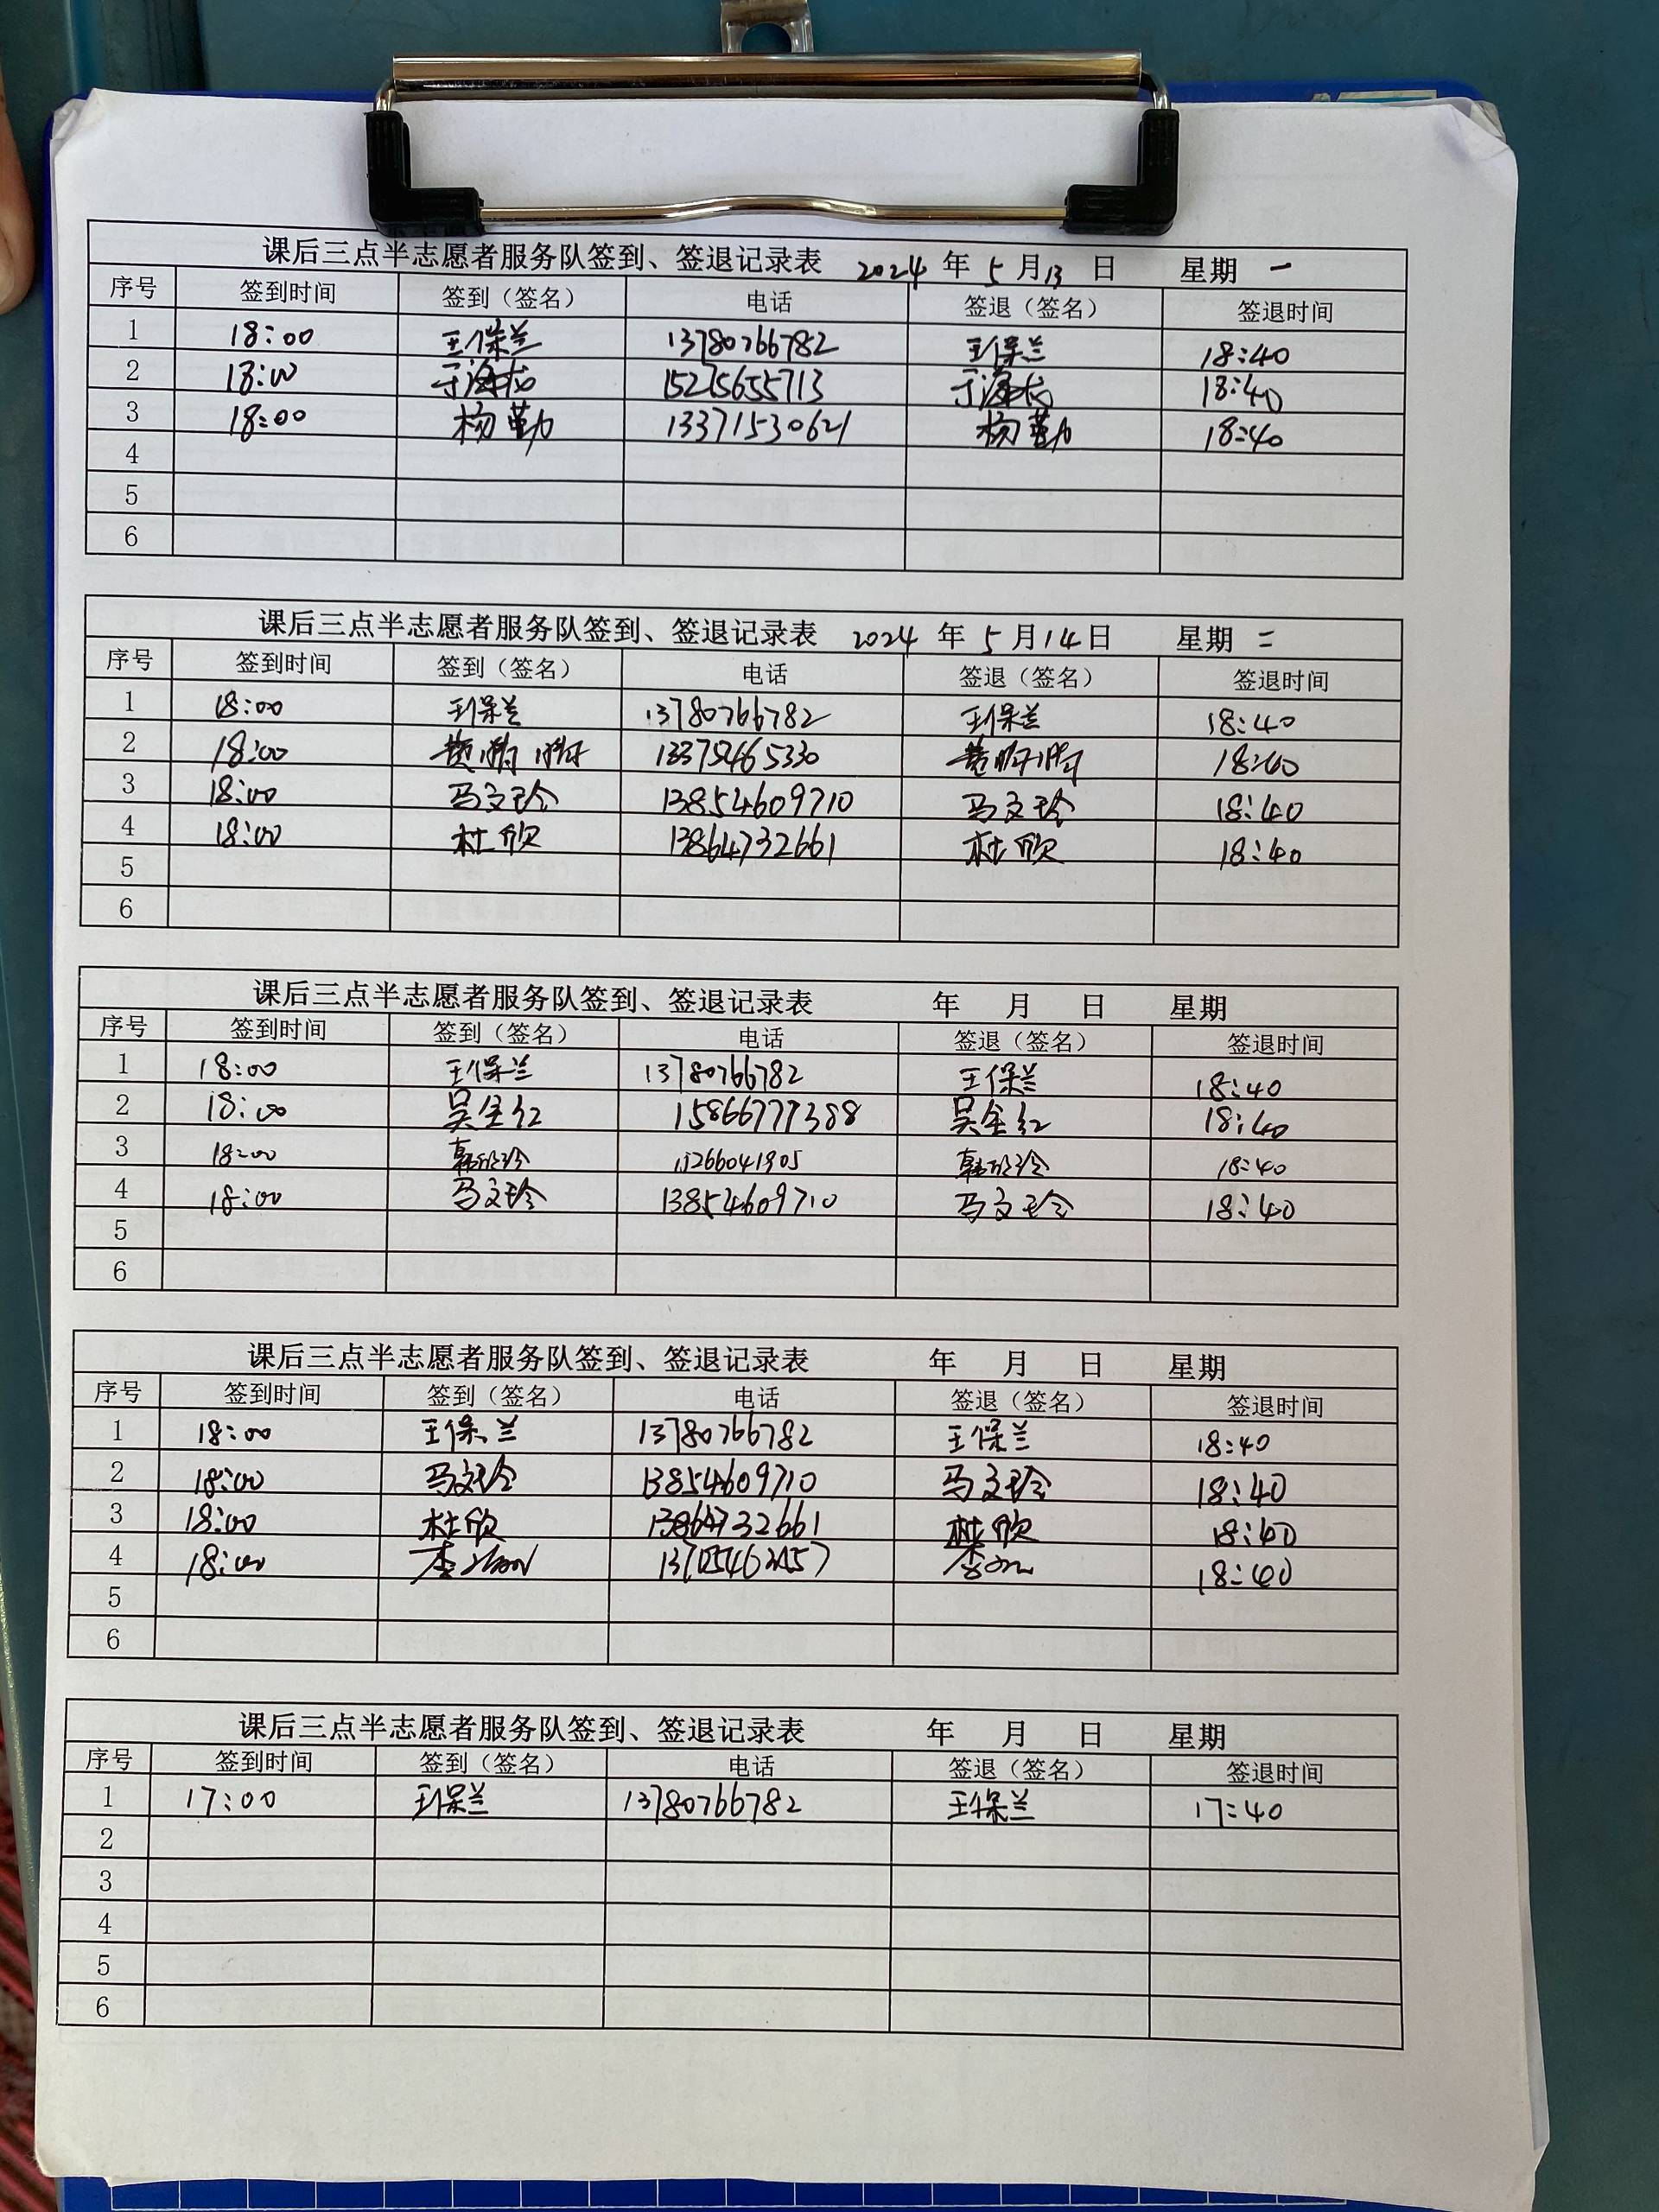 课后三点半志愿者服务队签到、签退记录表 2024 年 5 月 13 日 星期 一
序号 签到时间 签到（签名） 电话 签退（签名） 签退时间
1 18:00 王保兰 13780766782 王保兰 18:40
2 18:00 15275655713 18:40
3 18:00 杨勤 13371530621 杨勤 18:40
4
5
6
课后三点半志愿者服务队签到、签退记录表 2024 年 5 月 14 日 星期 二
序号 签到时间 签到（签名） 电话 签退（签名） 签退时间
1 18:00 王保兰 13780766782 王保兰 18:40
2 18:00 18:40
3 18:00 马文玲 13854609710 马文玲 18:40
4 18:00 杜欣 13864732661 杜欣 18:40
5
6
课后三点半志愿者服务队签到、签退记录表 年 月 日 星期
序号 签到时间 签到（签名） 电话 签退（签名） 签退时间
1 18:00 王保兰 13780766782 王保兰 18:40
2 18:00 吴全红 15866777388 吴全红 18:40
3 18:00 韩欣玲 18:40
4 18:00 马文玲 13854609710 马文玲 18:40
5
6
课后三点半志愿者服务队签到、签退记录表 年 月 日 星期
序号 签到时间 签到（签名） 电话 签退（签名） 签退时间
1 18:00 王保兰 13780766782 王保兰 18:40
2 18:00 马文玲 13854609710 马文玲 18:40
3 18:00 杜欣 13864732661 杜欣 18:40
4 18:00 18:40
5
6
课后三点半志愿者服务队签到、签退记录表 年 月 日 星期
序号 签到时间 签到（签名） 电话 签退（签名） 签退时间
1 17:00 王保兰 13780766782 王保兰 17:40
2
3
4
5
6